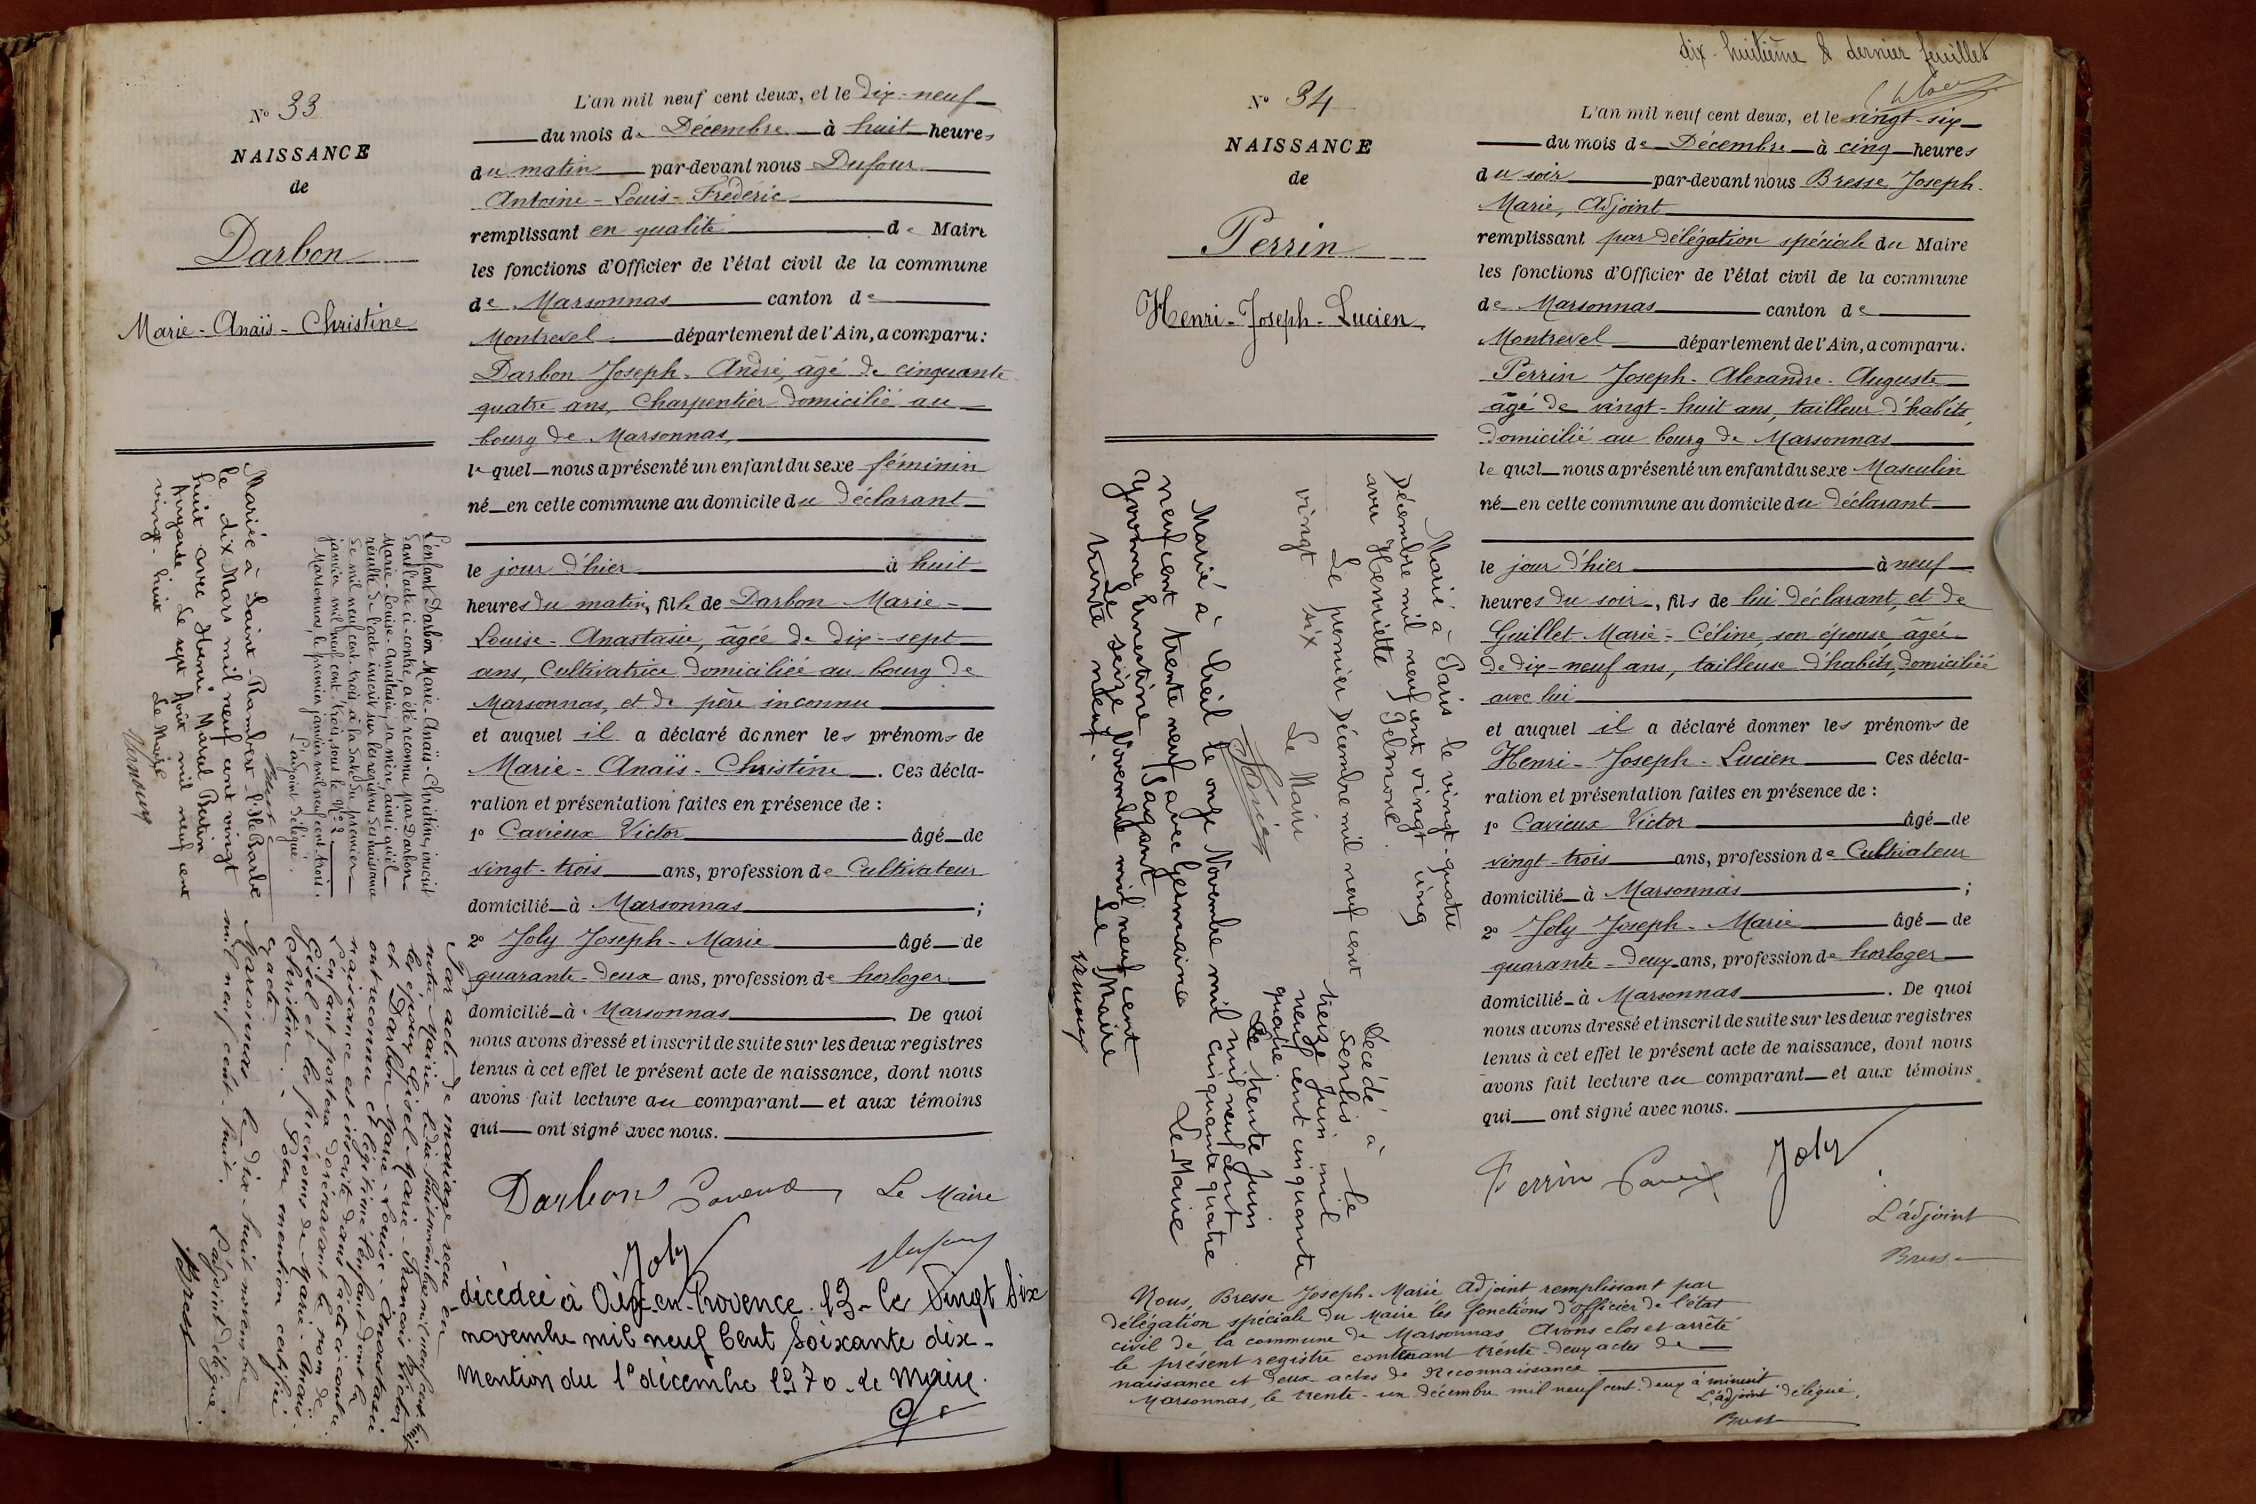 N° 33
NAISSANCE
de
Darbon
Marie-Anaïs-Christine
L'an mil neuf cent deux, et le dix-neuf
du mois de Décembre à huit heures
du matin par-devant nous Dufour
Antoine-Louis-Frédéric
remplissant en qualité de Maire
les fonctions d'Officier de l'état civil de la commune
de Marsonnas canton de
Montrevel département de l'Ain, a comparu:
Darbon Joseph-André, âgé de cinquante
quatre ans, Charpentier domicilié au
bourg de Marsonnas,
lequel nous a présenté un enfant du sexe féminin
né en cette commune au domicile du déclarant
le jour d'hier à huit
heures du matin, fille de Darbon Marie-
Louise-Anastasie, âgée de dix-sept
ans, Cultivatrice domiciliée au bourg de
Marsonnas, et de père inconnu
et auquel il a déclaré donner les prénoms de
Marie-Anaïs-Christine. Ces décla-
ration et présentation faites en présence de :
1° Cavieux Victor âgé de
vingt-trois ans, profession de Cultivateur
domicilié à Marsonnas ;
2° Joly Joseph-Marie âgé de
quarante-deux ans, profession de horloger
domicilié à Marsonnas. De quoi
nous avons dressé et inscrit de suite sur les deux registres
tenus à cet effet le présent acte de naissance, dont nous
avons fait lecture au comparant et aux témoins
qui ont signé avec nous.
Darbon Le Maire
Joly
décédée à Aix-en-Provence. 13 - le Vingt Six
novembre mil neuf Cent Soixante dix-
Mention du 1er décembre 1970 - Le Maire.
L'enfant Darbon Marie-Anaïs-Christine, inscrit
dans l'acte ci-contre, a été reconnu par Darbon
Marie-Louise-Anastasie, sa mère, ainsi qu'il
résulte de l'acte inscrit sur les registres de naissance
de mil neuf cent trois, à la date du premier
janvier mil neuf cent trois, sous le N° 2
Marsonnas, le premier janvier mil neuf cent trois.
L'adjoint délégué.
Bresse
Marié à Saint-Rambert-l'Ile-Barbe
le dix Mars mil neuf cent vingt
huit avec Henri Marcel Bertin
le sept Août mil neuf cent
vingt-huit Le Maire
Par acte de mariage reçu en
notre Mairie
les époux Gisel Marie-François Victor
et Darbon Marie-Louise-Anastasie
ont reconnu et légitimé l'enfant dont la
naissance est inscrite dans l'acte ci-contre.
L'enfant portera dorénavant le nom de
Gisel et les prénoms de Marie-Anaïs-
Christine. Pour mention certifiée
exacte.
Marsonnas le dix-huit novembre
mil neuf cent-huit.
L'adjoint délégué.
Bresse
dix-huitième & dernier feuillet
N° 34
NAISSANCE
de
Perrin
Henri-Joseph-Lucien
L'an mil neuf cent deux, et le vingt-six
du mois de Décembre à cinq heures
du soir par-devant nous Bresse Joseph-
Marie, Adjoint
remplissant par délégation spéciale du Maire
les fonctions d'Officier de l'état civil de la commune
de Marsonnas canton de
Montrevel département de l'Ain, a comparu.
Perrin Joseph-Alexandre-Auguste
âgé de vingt-huit ans, tailleur d'habits,
domicilié au bourg de Marsonnas
lequel nous a présenté un enfant du sexe Masculin
né en cette commune au domicile du déclarant
le jour d'hier à neuf
heures du soir, fils de lui déclarant, et de
Guillet Marie-Céline, son épouse âgée
de dix-neuf ans, tailleuse d'habits, domiciliée
avec lui
et auquel il a déclaré donner les prénoms de
Henri-Joseph-Lucien Ces décla-
ration et présentation faites en présence de :
1° Cavieux Victor âgé de
vingt-trois ans, profession de Cultivateur
domicilié à Marsonnas ;
2° Joly Joseph-Marie âgé de
quarante-deux ans, profession de horloger
domicilié à Marsonnas. De quoi
nous avons dressé et inscrit de suite sur les deux registres
tenus à cet effet le présent acte de naissance, dont nous
avons fait lecture au comparant et aux témoins
qui ont signé avec nous.
Perrin Joly
L'adjoint
Bresse
Marié à Paris le vingt-quatre
Décembre mil neuf cent vingt cinq
avec Henriette
Le premier Décembre mil neuf cent
vingt six Le Maire
Marié à Creil le onze Novembre mil
neuf cent trente neuf avec Germaine
Yvonne Ernestine Sagent
Le seize Novembre mil neuf cent
trente neuf. Le Maire
Décédé à
Senlis le
treize Juin mil
neuf cent cinquante
quatre.
Le trente Juin
mil neuf cent
cinquante quatre
Le Maire
Nous, Bresse Joseph-Marie Adjoint remplissant par
délégation spéciale du Maire les fonctions d'officier de l'état
civil de la commune de Marsonnas avons clos et arrêté
le présent registre contenant trente-deux actes de
naissance et deux actes de Reconnaissance
Marsonnas, le trente-un décembre mil neuf cent deux à minuit
L'adjoint délégué,
Bresse